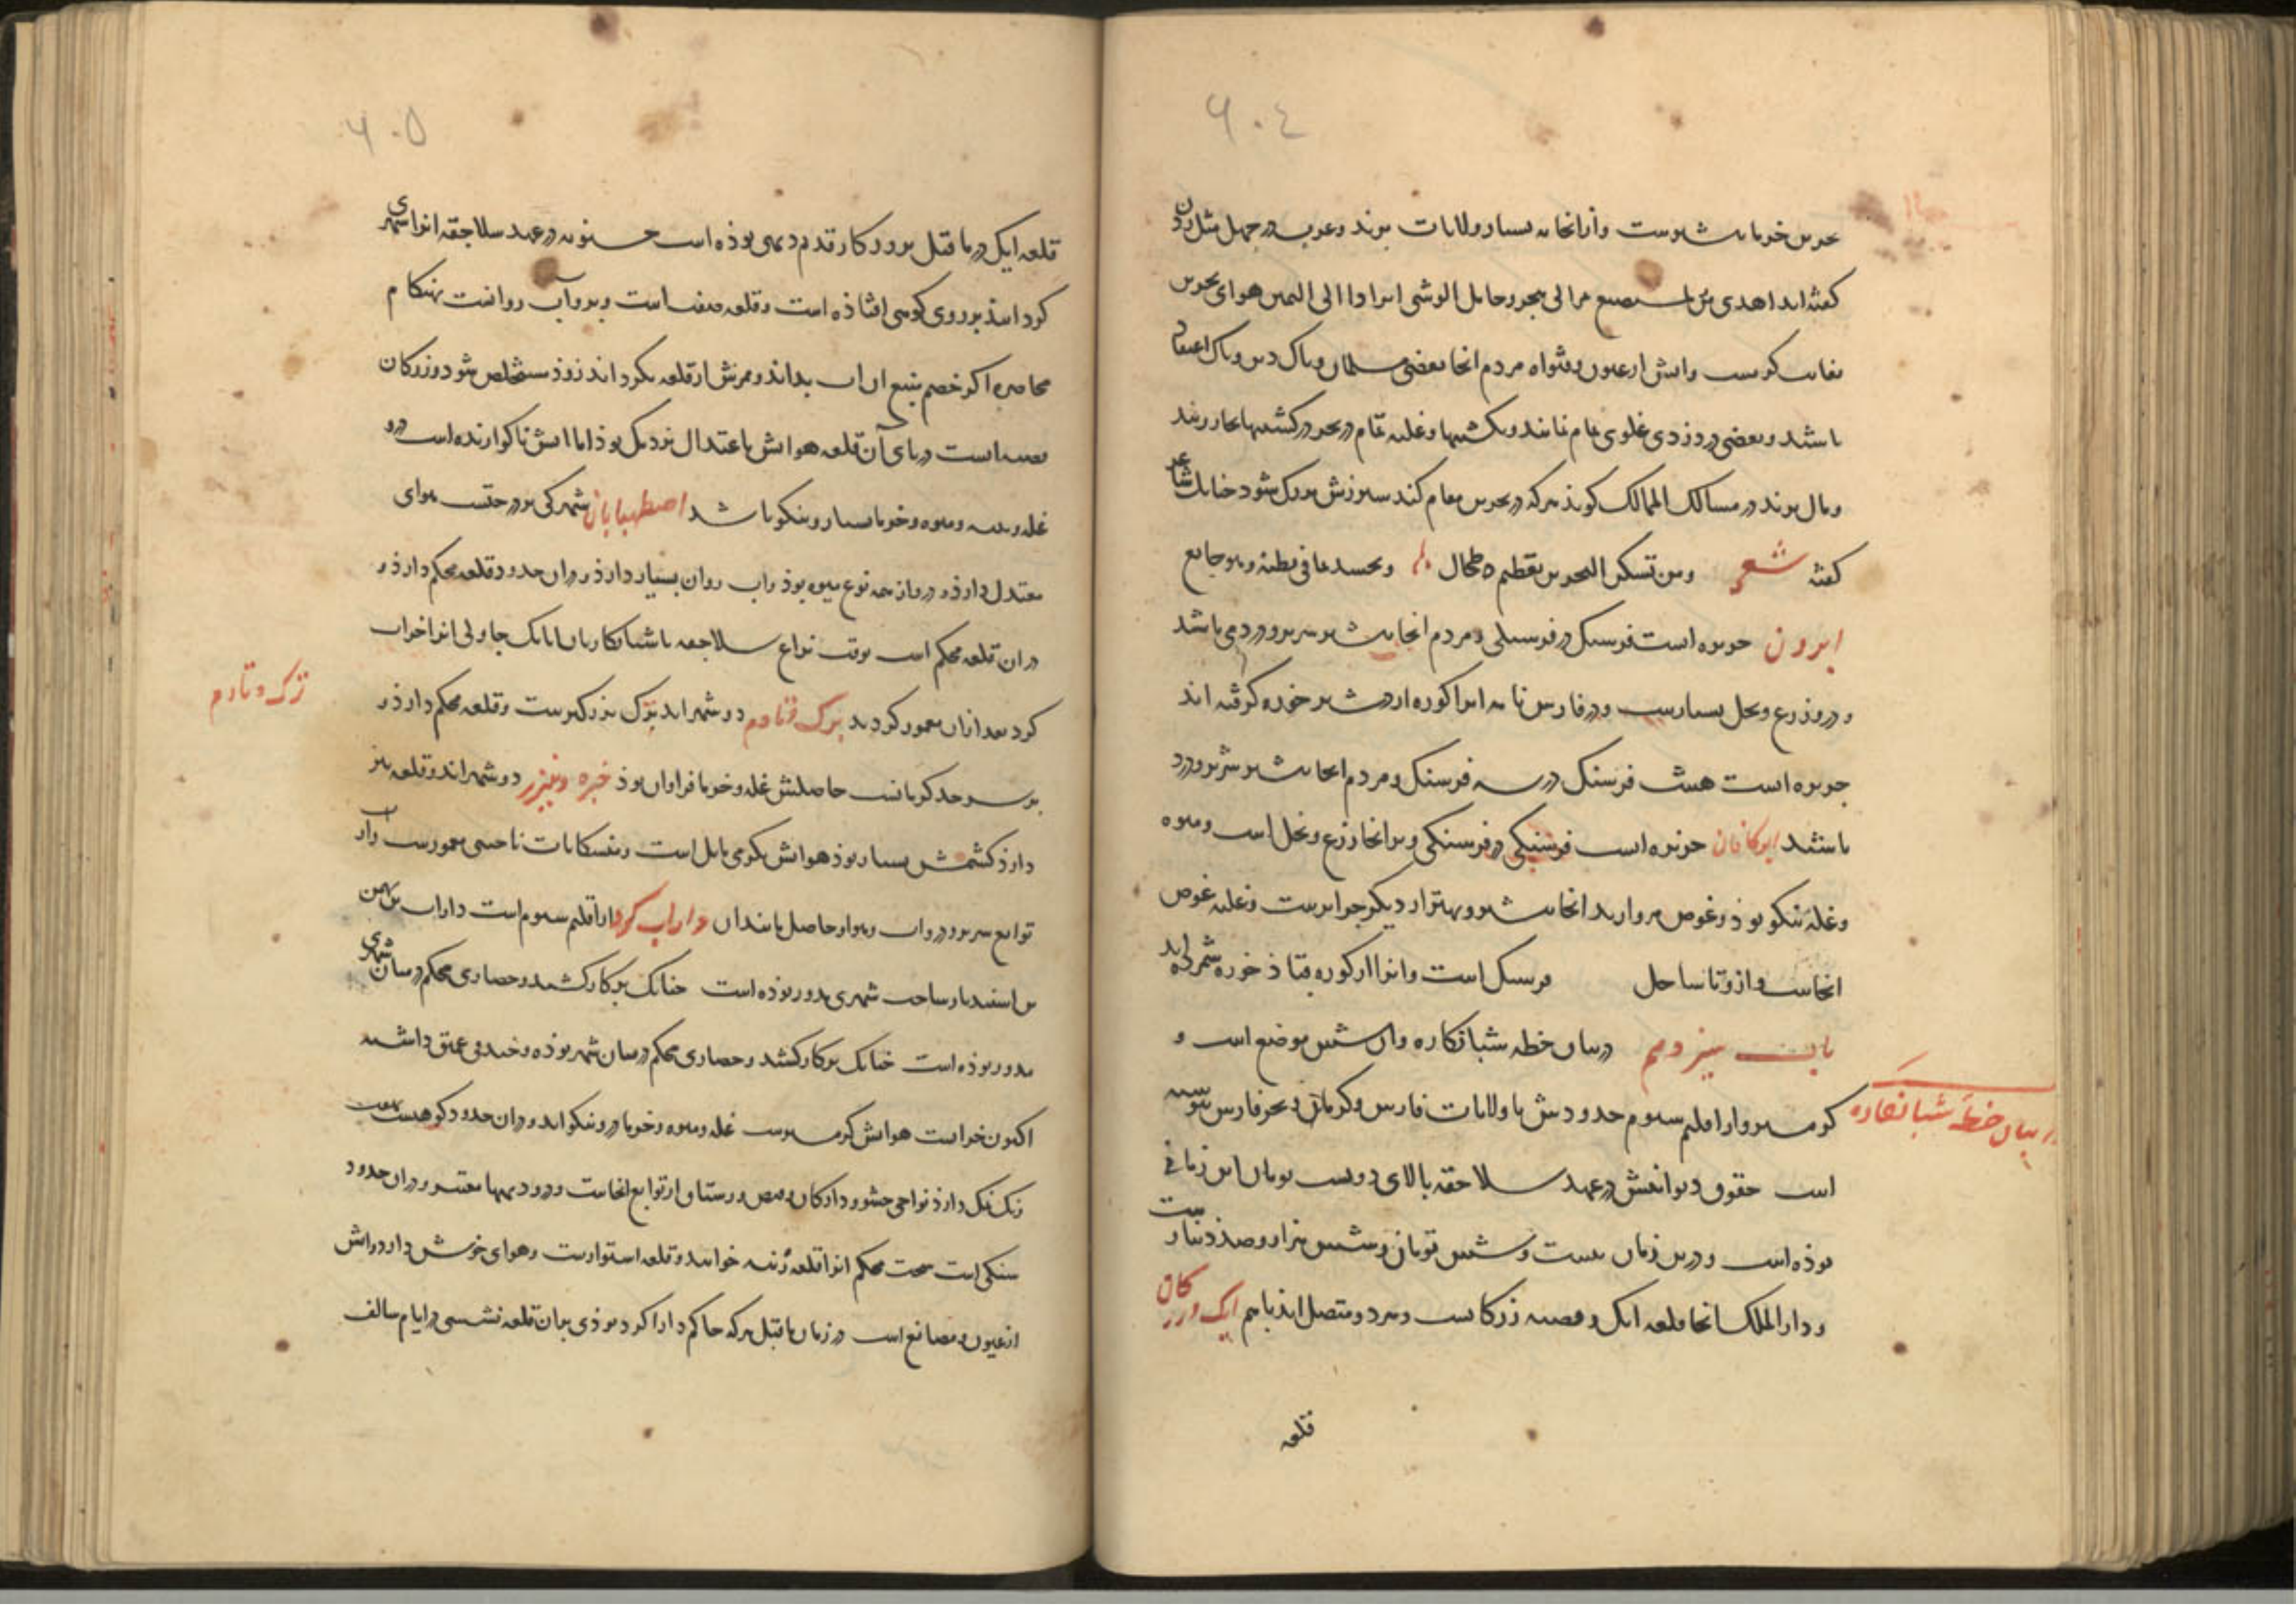 ٦٠٤
بحرین خرما بیشترست و از انجا به بسیار ولایات برند و عرب در جهل مثل زدن
گفته‌اند اهدی من
بغایت گرمست و ابش از عیون و قنواه مردم انجا بعضی مسلمان و پاک دین و پاک اعتقاد
باشند و بعضی در دزدی غلوی تمام نمایند و بکشتیها و غلبه تمام در بحر در کشتیها تجار زنند
و مال برند در مسالک الممالک کوید هرکه در بحرین مقام کند سپرزش بزرک شود چنانک شاعر
کفته شعر ومن تسکن البحرین یعظم طحاله ویحسد بما فی بطنه وهو جایع
ابرون جزیره است فرسنکی در فرسنکی و مردم انجا بیشتر سربرو دزد می باشد
و درو زرع و نخل بسیارست و در فارس نامه انرا کوره اردشیر خوره کرفته اند
جزیره است هشت فرسنک در سه فرسنک و مردم انجا بیشتر شریر و دزد
باشند ابرکافان جزیره است فرسنکی در فرسنکی و بر انجا زرع و نخل است و میوه
و غله نیکو بود و غوص مروارید انجا بیشتر و بهتر از دیکر جزایرست و غلبه غوص
انجاست و ازو تا ساحل فرسنک است و انرا از کوره قباد خوره شمرده اند
باب سیزدهم در بیان خطه شبانکاره و ان شش موضع است و
در بیان خطه شبانکاره
کرمسیر و از اقلیم سیوم حدودش با ولایات فارس و کرمان و بحر فارس پیوسته
است حقوق دیوانیش در عهد سلاجقه بالای دویست تومان این زمانی
بوده است و درین زمان بیست و شش تومان و شش هزار و صد دینار است
و دار الملک انجا قلعه ایک و قصبه زرکانست و هر دو متصل اند باهم ایک و زرکان
قلعه
٦٠٥
قلعه ایک در ما قبل بروزکار قدیم دیهی بوذه است حسنویه در عهد سلاجقه انرا شهری
کرد اند بر روی کوهی افتاذه است و قلعه صفه است و برو آب روانست بهنکام
محاصره اکر خصم منبع ان اب بداند و ممرش از قلعه بکرداند زود مستخلص شود و زرکان
قصبه است در پای آن قلعه هوایش باعتدال نزدیک بوذ اما ابش ناکوارنده است درو
غله و پنبه و میوه و خرما بسیار و نیکو باشد اصطهبانان شهرکی پر درختست هوای
معتدل دارد و درو از همه نوع میوه بود و اب روان بسیار دارد و در ان حدود قلعه محکم دارد و
در ان قلعه محکم است بوقت نزاع سلاجقه با شبانکاریان اتابک جاولی انرا خراب
کرد بعد ازان معمور کردند برک و تارم دو شهر اند برک بزرکترست و قلعه محکم دارد و
ترک و تارم
بر سرحد کرمانست حاصلش غله و خرما فراوان بوذ خیره و نیریز دو شهر اند و قلعه نیز
دارد کشمش بسیار بود هوایش بکرمی مایل است و بشکانات ناحیتی معمورست و از
توابع نیریز و درو اب و هوا و حاصل مانند ان داراب کرد از اقلیم سیوم است داراب بن بهمن
بن اسفندیار ساخت شهری مدور بوده است چنانک برکار کشند و حصاری محکم در میان شهری
مدور بوده است چنانک برکار کشند و حصاری محکم در میان شهر بوده و خندقی عمیق داشته
اکنون خرابست هوایش کرمسیرست غله و میوه و خرما درو نیکو اید و در ان حدود کوهیست
نمک دارد نواحی حشو و دارکان و مص و رستاق از توابع انجاست و درو دیهها معتبر و در ان حدود
تنکی است سخت محکم انرا قلعه رنبه خوانند و قلعه استوارست و هوای خوش دارد و ابش
از عیون و مصانع است در زمان ما قبل هرکه حاکم دارا کرد بودی بران قلعه نشستی در ایام سالف